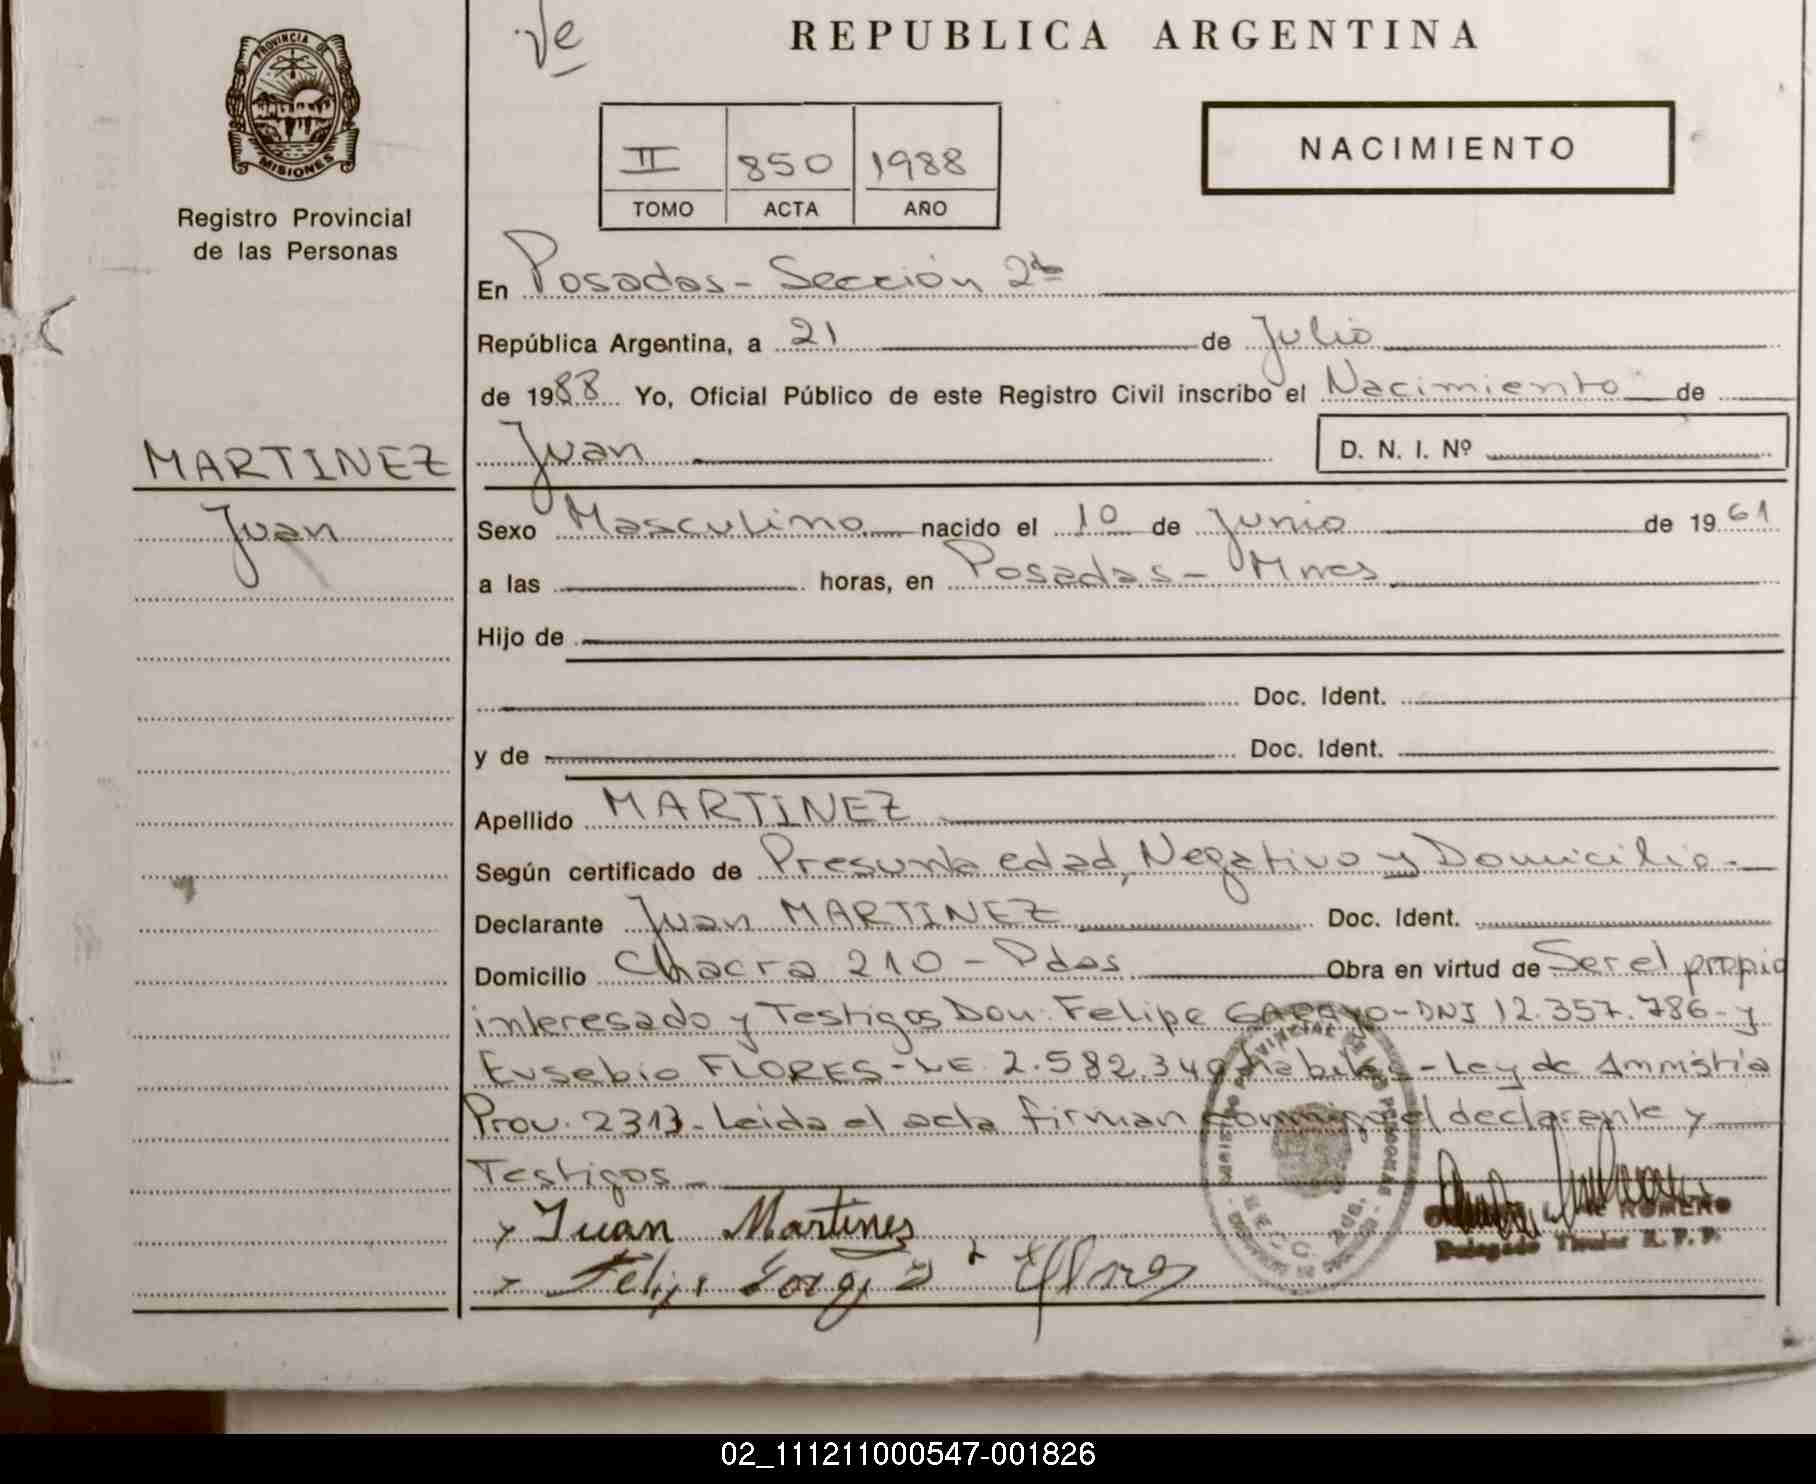 Ve
REPUBLICA ARGENTINA
PROVINCIA DE
MISIONES
Registro Provincial
de las Personas
II 850 1988
TOMO ACTA AÑO
NACIMIENTO
En Posadas - Sección 2da
República Argentina, a 21 de Julio
de 1988 Yo, Oficial Público de este Registro Civil inscribo el Nacimiento de
MARTINEZ
Juan
Juan
D. N. I. Nº
Sexo Masculino nacido el 10 de Junio de 1961
a las horas, en Posadas - Mnes
Hijo de
Doc. Ident.
y de Doc. Ident.
Apellido MARTINEZ
Según certificado de Presunta edad, Negativo y Domicilio.-
Declarante Juan MARTINEZ Doc. Ident.
Domicilio Chacra 210 - Pdas Obra en virtud de Ser el propio
interesado y Testigos Don: Felipe GARAYO - DNI 12.357.786 - y
Eusebio FLORES - LE. 2.582.349 habiles - Ley de Amnistia
Prov. 2313 - Leida el acta firman conmigo el declarante y
Testigos -
Juan Martines
Felipe
EFlores
ROMERO
Delegado Titular R. P. P.
02_111211000547-001826